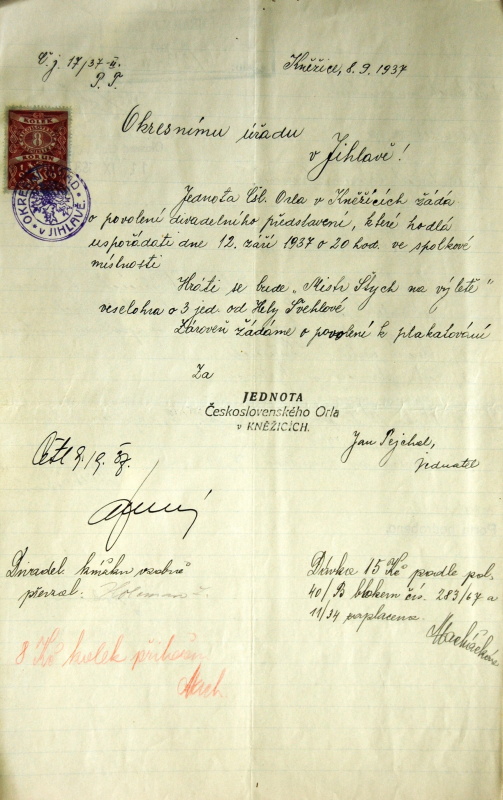 Č.j. 17/37-II.
P. T.
Kněžice, 8. 9. 1937
KOLEK
8
KORUN
OKRESNÍ ÚŘAD
V JIHLAVĚ
Okresnímu úřadu
v Jihlavě!
Jednota Čsl. Orla v Kněžicích žádá
o povolení divadelního představení, které hodlá
uspořádati dne 12. září 1937 o 20 hod. ve spolkové
místnosti
Hráti se bude „Mistr Štych na výletě"
veselohra o 3 jed. od Hely Švehlové
Zároveň žádáme o povolení k plakatování
Za
JEDNOTA
Československého Orla
v KNĚŽICÍCH.
Jan Pejchal,
jednatel
9/9. 37.
Divadel. knížku osobně
převzal:
Dávka 15 Kč podle pol.
40/B blokem čís. 283/67 a
11/34 zaplacena.
8 Kč kolek